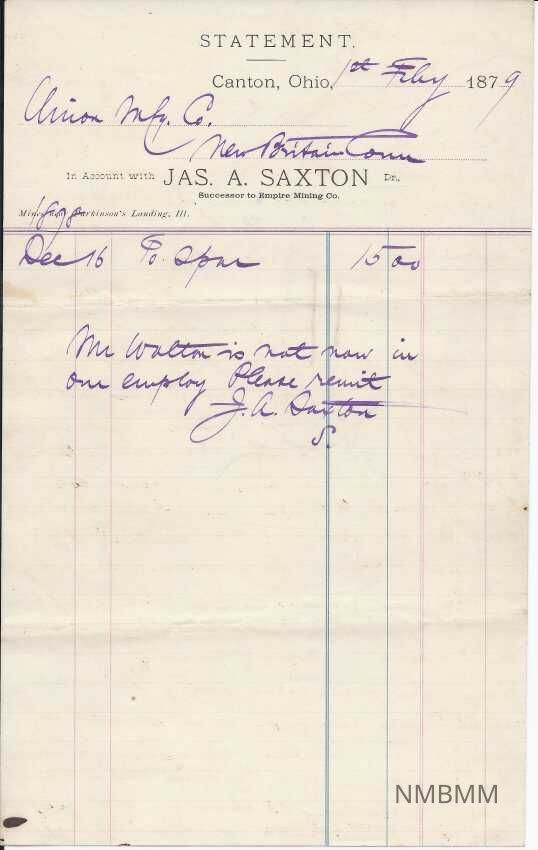 STATEMENT.
Canton, Ohio, 1st Feby 1879
Union Mfg. Co.
New Britain Conn
In Account with JAS. A. SAXTON Dr.
Successor to Empire Mining Co.
Mines near Parkinson's Landing, Ill.
1878
Dec 16 To Spar 15 00
Mr Walton is not now in
our employ Please remit
J. A. Saxton
S.
NMBMM